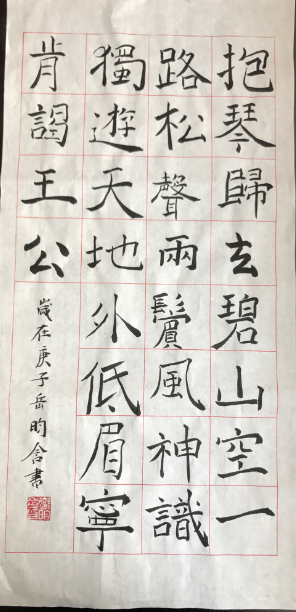 抱琴歸去碧山空一
路松聲兩鬢風神識
獨遊天地外低眉寧
肯謁王公
歲在庚子岳昀含書